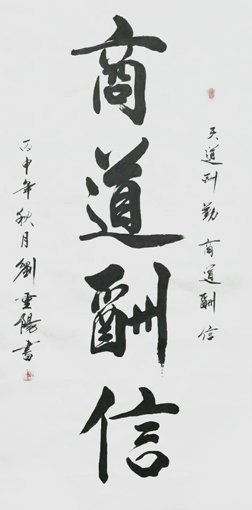 天道酬勤 商道酬信
商道酬信
丙申年秋月劉雲陽書